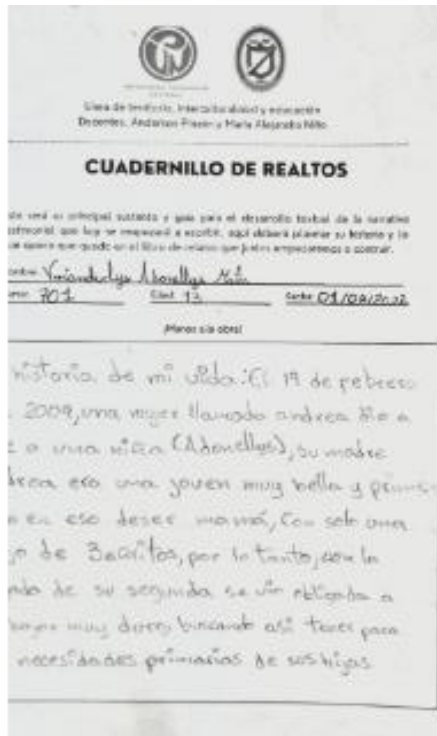 Línea de territorio, interculturalidad y educación
Docentes, Anderson Pinzón y María Alejandra Niño
CUADERNILLO DE REALTOS
ste será el principal sustento y guía para el desarrollo textual de la narrativa
testimonial que hoy se empezará a escribir, aquí deberá plasmar su historia y lo
que quiere que quede en el libro de relatos que juntos empezaremos a construir.
ombre
urso: 701 Edad: 13 Fecha: 01/
¡Manos a la obra!
historia de mi vida: El 19 de febrero
2009, una mujer llamada andrea dio a
a una niña (Adonellys), su madre
drea era una joven muy bella y
en eso deser mamá, Con solo una
de 3 añitos, por lo tanto, con la
de su segunda se vio obligada a
muy duro, buscando así tener para
necesidades primarias de sus hijas